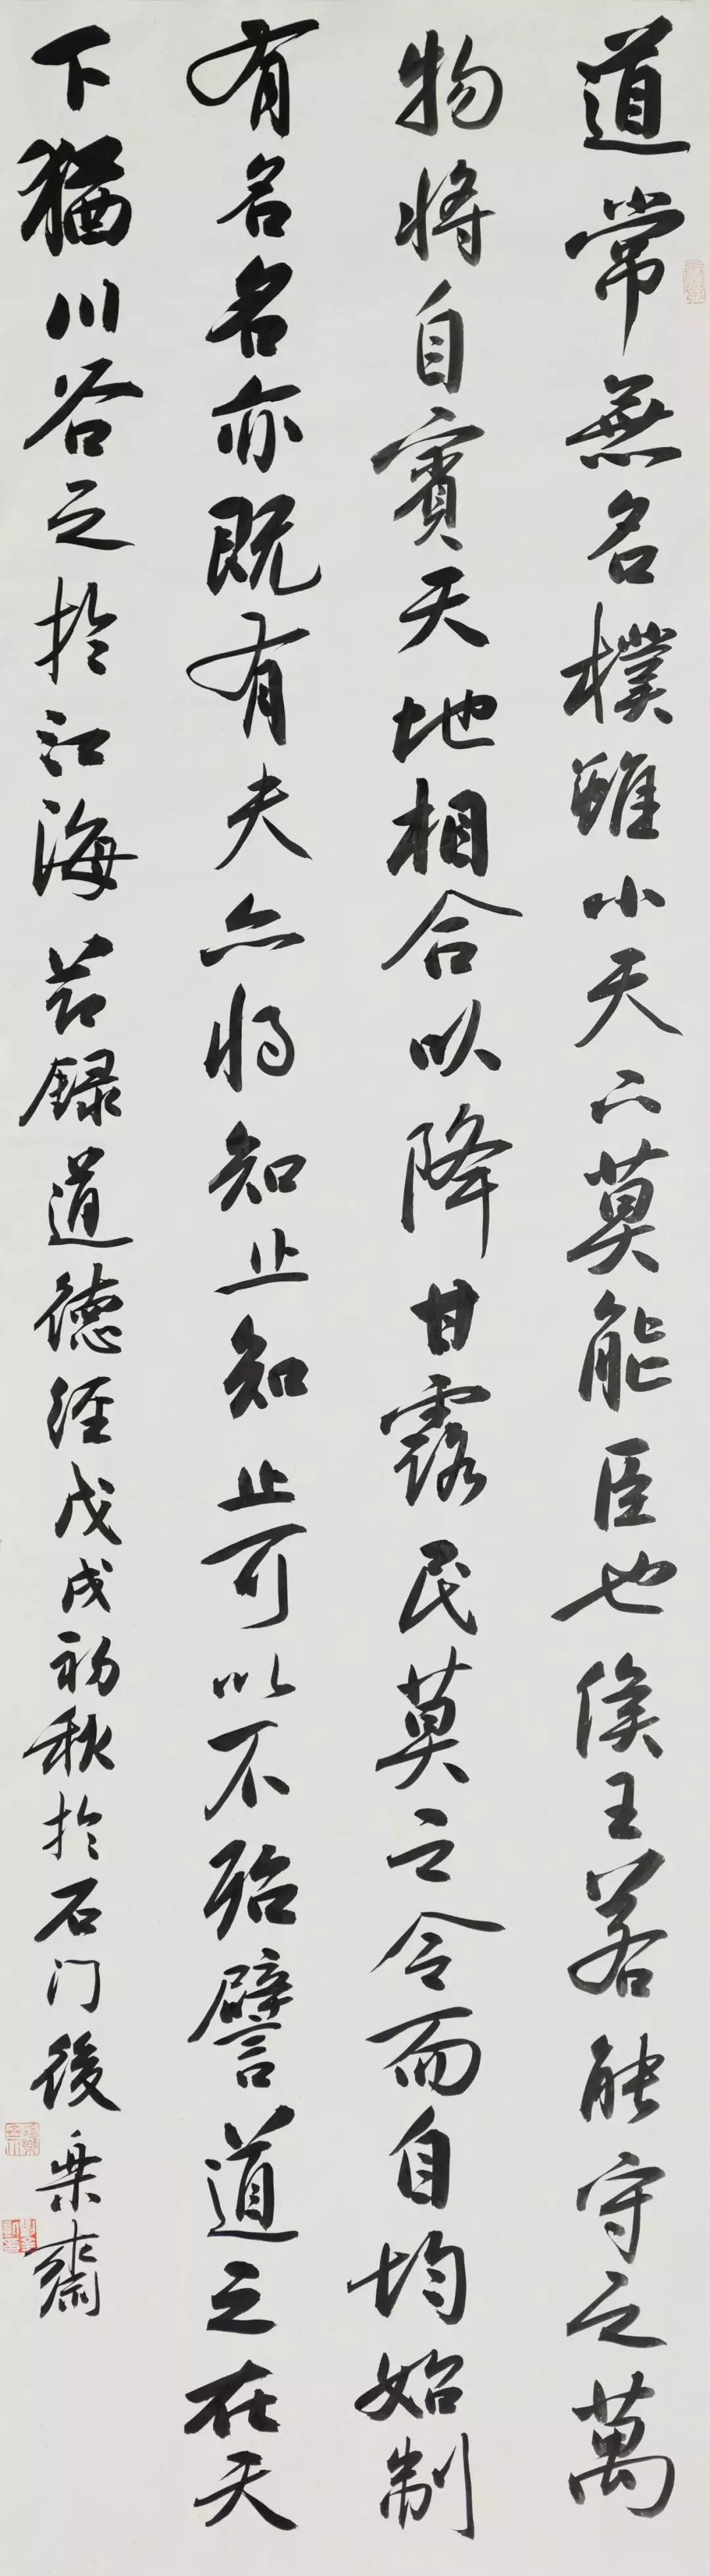 道常無名樸雖小天下莫能臣也侯王若能守之萬
物將自賓天地相合以降甘露民莫之令而自均始制
有名名亦既有夫亦將知止知止可以不殆譬道之在天
下猶川谷之於江海 节録道德经戊戌初秋於石门後樂齋